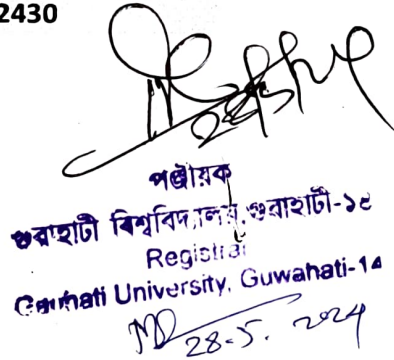 2430
পঞ্জীয়ক
গুৱাহাটী বিশ্ববিদ্যালয়,গুৱাহাটী-১৪
Registrar
Gauhati University, Guwahati-14
28-5. 2024